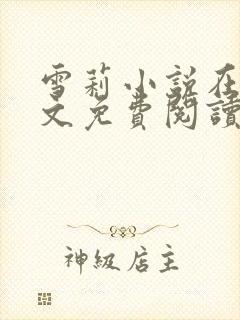 雪莉小說在
文免費閱讀
神級店主